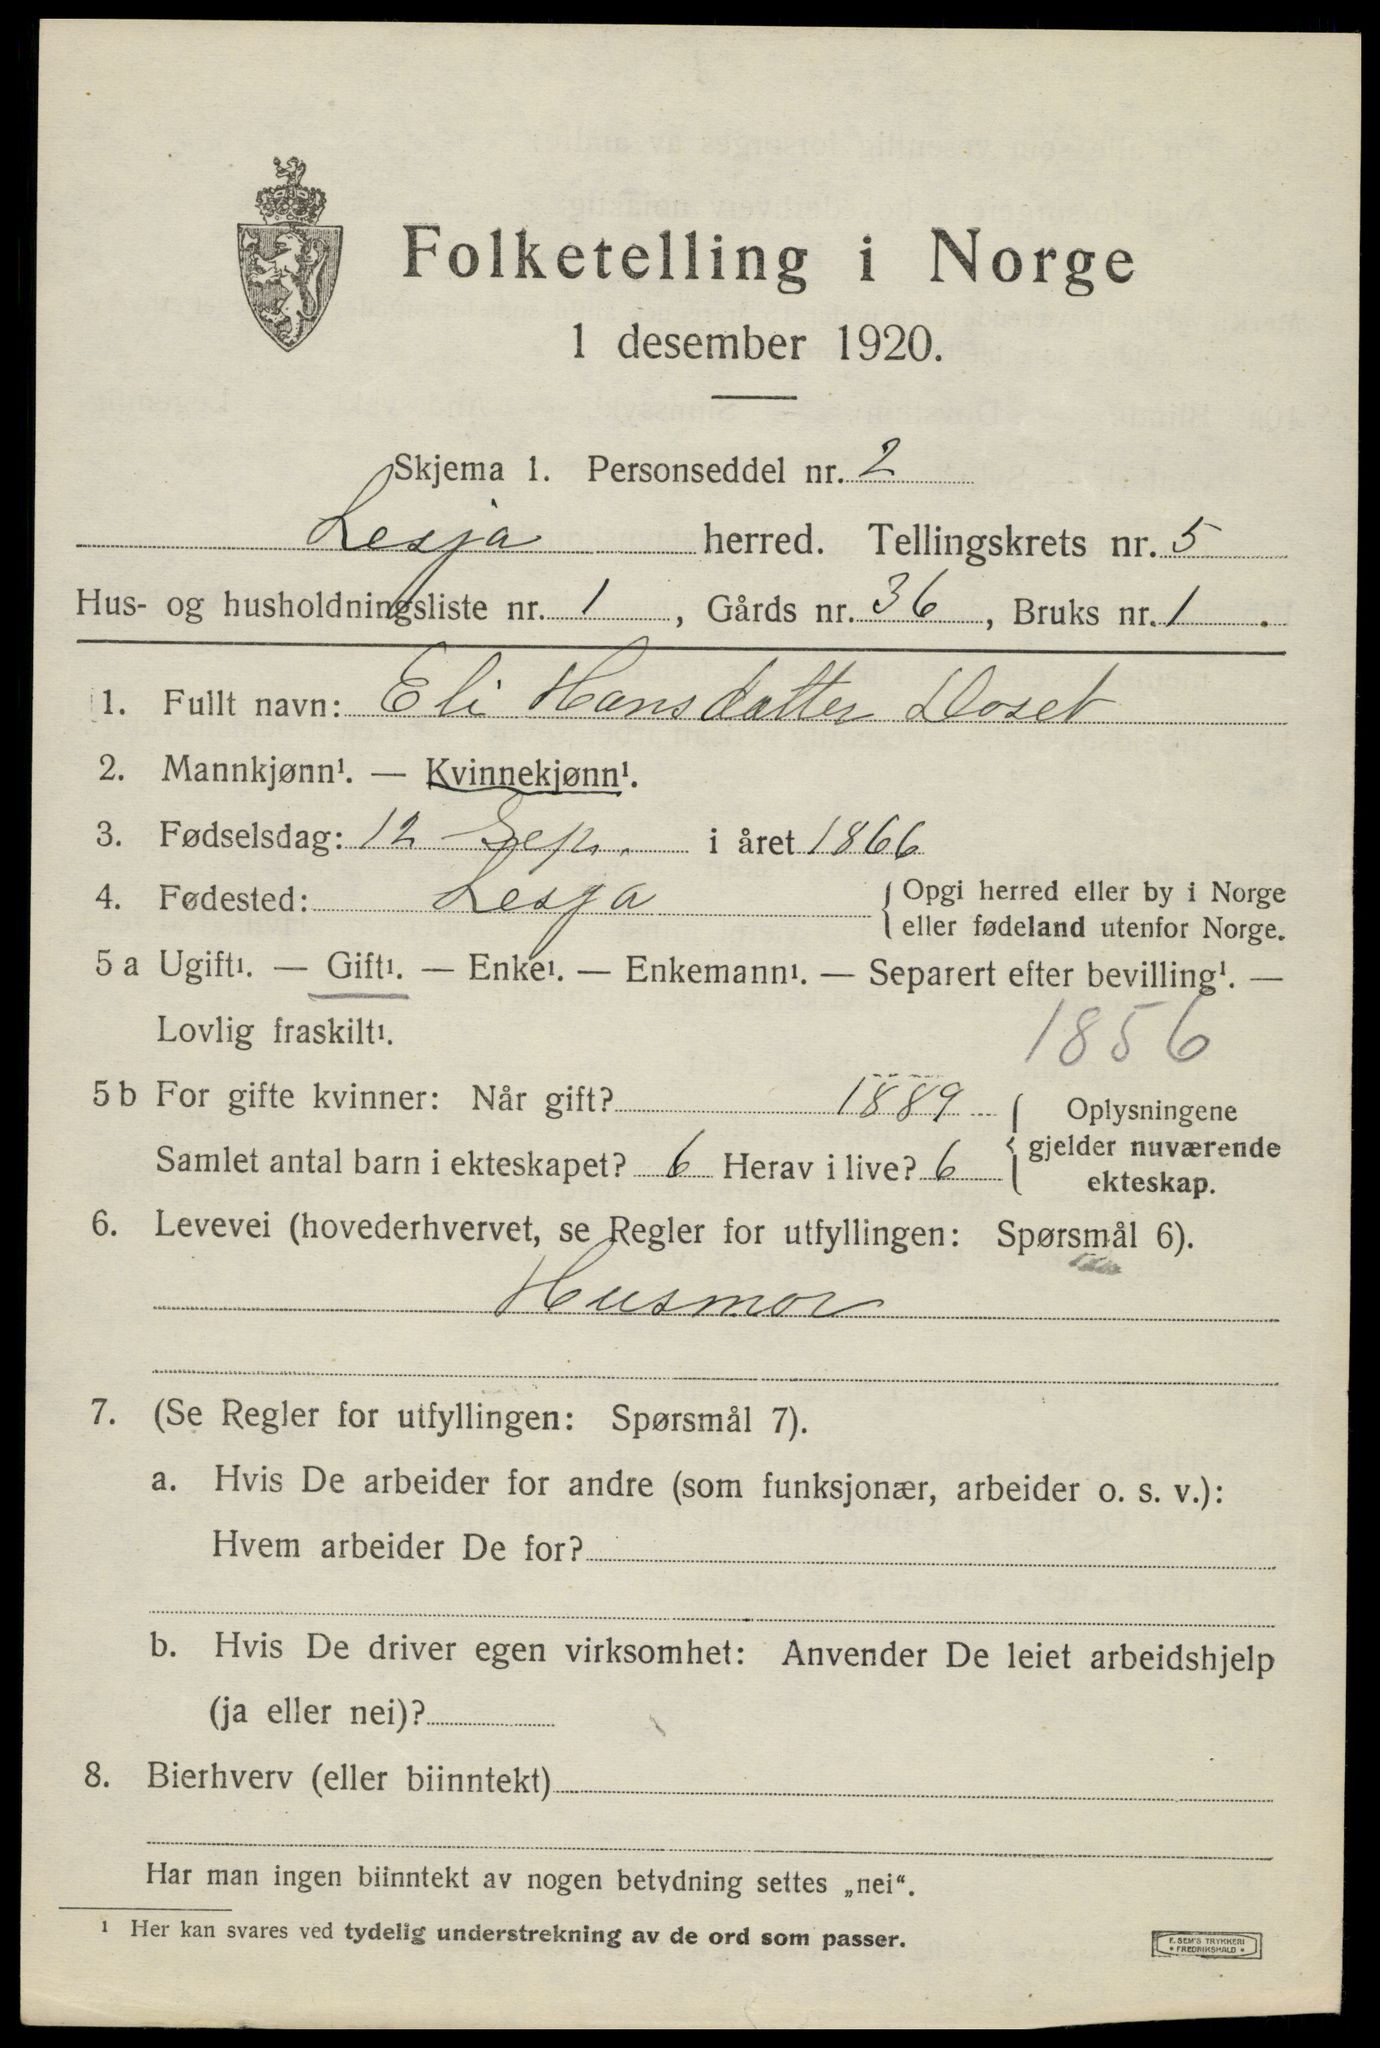 Folketelling i Norge
1 desember 1920.
Skjema 1. Personseddel nr. 2
Lesja herred. Tellingskrets nr. 5
Hus- og husholdningsliste nr. 1, Gårds nr. 36, Bruks nr. 1.
1. Fullt navn: Eli Hansdatter Doset
2. Mannkjønn¹. — Kvinnekjønn¹.
3. Fødselsdag: 12 Sep. i året 1866
4. Fødested: Lesja { Opgi herred eller by i Norge
eller fødeland utenfor Norge.
5 a Ugift¹. — Gift¹. — Enke¹. — Enkemann¹. — Separert efter bevilling¹. —
Lovlig fraskilt¹.
1856
5 b For gifte kvinner: Når gift? 1889 { Oplysningene
Samlet antal barn i ekteskapet? 6 Herav i live? 6 gjelder nuværende
ekteskap.
6. Levevei (hovederhvervet, se Regler for utfyllingen: Spørsmål 6).
Husmor
7. (Se Regler for utfyllingen: Spørsmål 7).
a. Hvis De arbeider for andre (som funksjonær, arbeider o. s. v.):
Hvem arbeider De for?
b. Hvis De driver egen virksomhet: Anvender De leiet arbeidshjelp
(ja eller nei)?
8. Bierhverv (eller biinntekt)
Har man ingen biinntekt av nogen betydning settes „nei“.
¹ Her kan svares ved tydelig understrekning av de ord som passer.
F. SEM'S TRYKKERI
• FREDRIKSHALD •